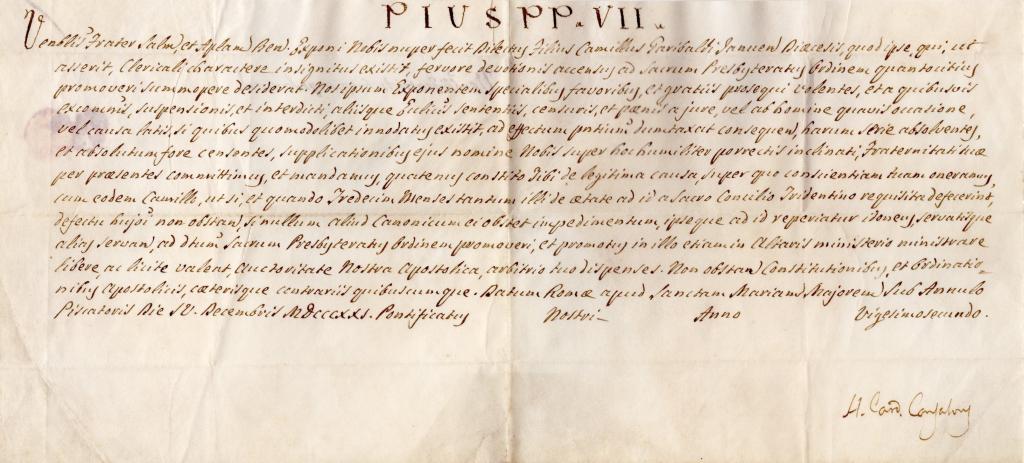 PIUS PP. VII.
Venblis Frater Salm, et Aplam Ben. Exponi Nobis nuper fecit Dilectus Filius Camillus Garibaldi Januen Diœcesis, quod ipse, qui, ut
asserit, Clericali charactere insignitus existit, fervore devotionis accensus ad Sacrum Presbyteratus Ordinem quantocitius
promoveri summopere desiderat. Nos ipsum Exponentem specialibus favoribus, et gratiis prosequi volentes, et a quibusvis
excomnis, suspensionis, et interdicti, aliisque Ecclicis sententiis, censuris, et pœnis a jure, vel ab homine quavis occasione,
vel causa latis, si quibus quomodolibet innodatus existit, ad effectum pntium dumtaxat consequen, harum serie absolventes,
et absolutum fore censentes, supplicationibus ejus nomine Nobis super hoc humiliter porrectis inclinati, Fraternitati tuæ
per præsentes committimus, et mandamus, quatenus constito tibi de legitima causa, super quo conscientiam tuam oneramus,
cum eodem Camillo, ut si, et quando Tredecim Menses tantum illi de ætate ad id a Sacro Concilio Tridentino requisita defecerint,
defectu hujoi non obstan, si nullum aliud Canonicum ei obstet impedimentum, ipseque ad id reperiatur idoneus, servatisque
alias servan, ad dtum Sacrum Presbyteratus Ordinem promoveri, et promotus in illo etiam in Altaris ministerio ministrare
libere, ac licite valeat, Auctoritate Nostra Apostolica, arbitrio tuo dispenses. Non obstan Constitutionibus, et Ordinatio-
nibus Apostolicis, cæterisque contrariis quibuscumque. Datum Romæ apud Sanctam Mariam Majorem Sub Annulo
Piscatoris Die IV. Decembris MDCCCXXI. Pontificatus Nostri Anno Vigesimosecundo.
H. Card. Consalvi